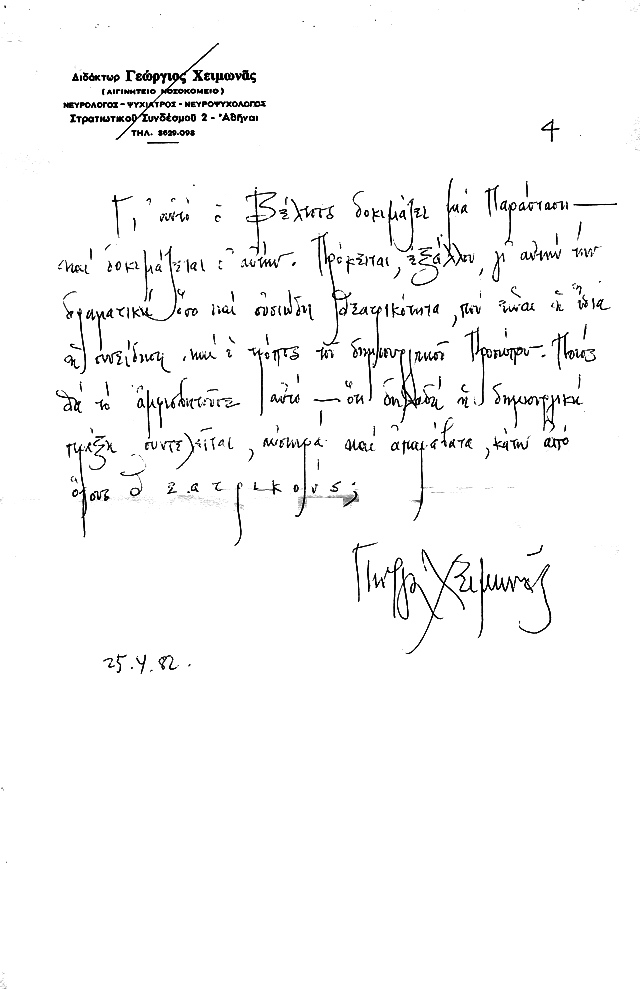 Διδάκτωρ Γεώργιος Χειμωνᾶς
(ΑΙΓΙΝΗΤΕΙΟ ΝΟΣΟΚΟΜΕΙΟ)
ΝΕΥΡΟΛΟΓΟΣ - ΨΥΧΙΑΤΡΟΣ - ΝΕΥΡΟΨΥΧΟΛΟΓΟΣ
Στρατιωτικοῦ Συνδέσμου 2 - Ἀθῆναι
ΤΗΛ. 3629.098
4
Γι' αὐτὸ ὁ Βέλτσος δοκιμάζει μιά Παράσταση —
καί δοκιμάζεται σ' αὐτήν. Πρόκειται, ἐξάλλου, γι' αὐτήν τήν
δραματική ὅσο καί οὐσιώδη θεατρικότητα, πού εἶναι ἡ ἴδια
ἡ συνείδηση καί ὁ τρόπος τοῦ δημιουργικοῦ Προσώπου. Ποιός
θά τό ἀμφισβητοῦσε αὐτό — ὅτι δηλαδή ἡ δημιουργική
πράξη συντελεῖται, αὐστηρά καί ἀπαράβατα, κάτω ἀπό
ὅρους θεατρικούς;
Γιῶργος Χειμωνᾶς
25.4.82.